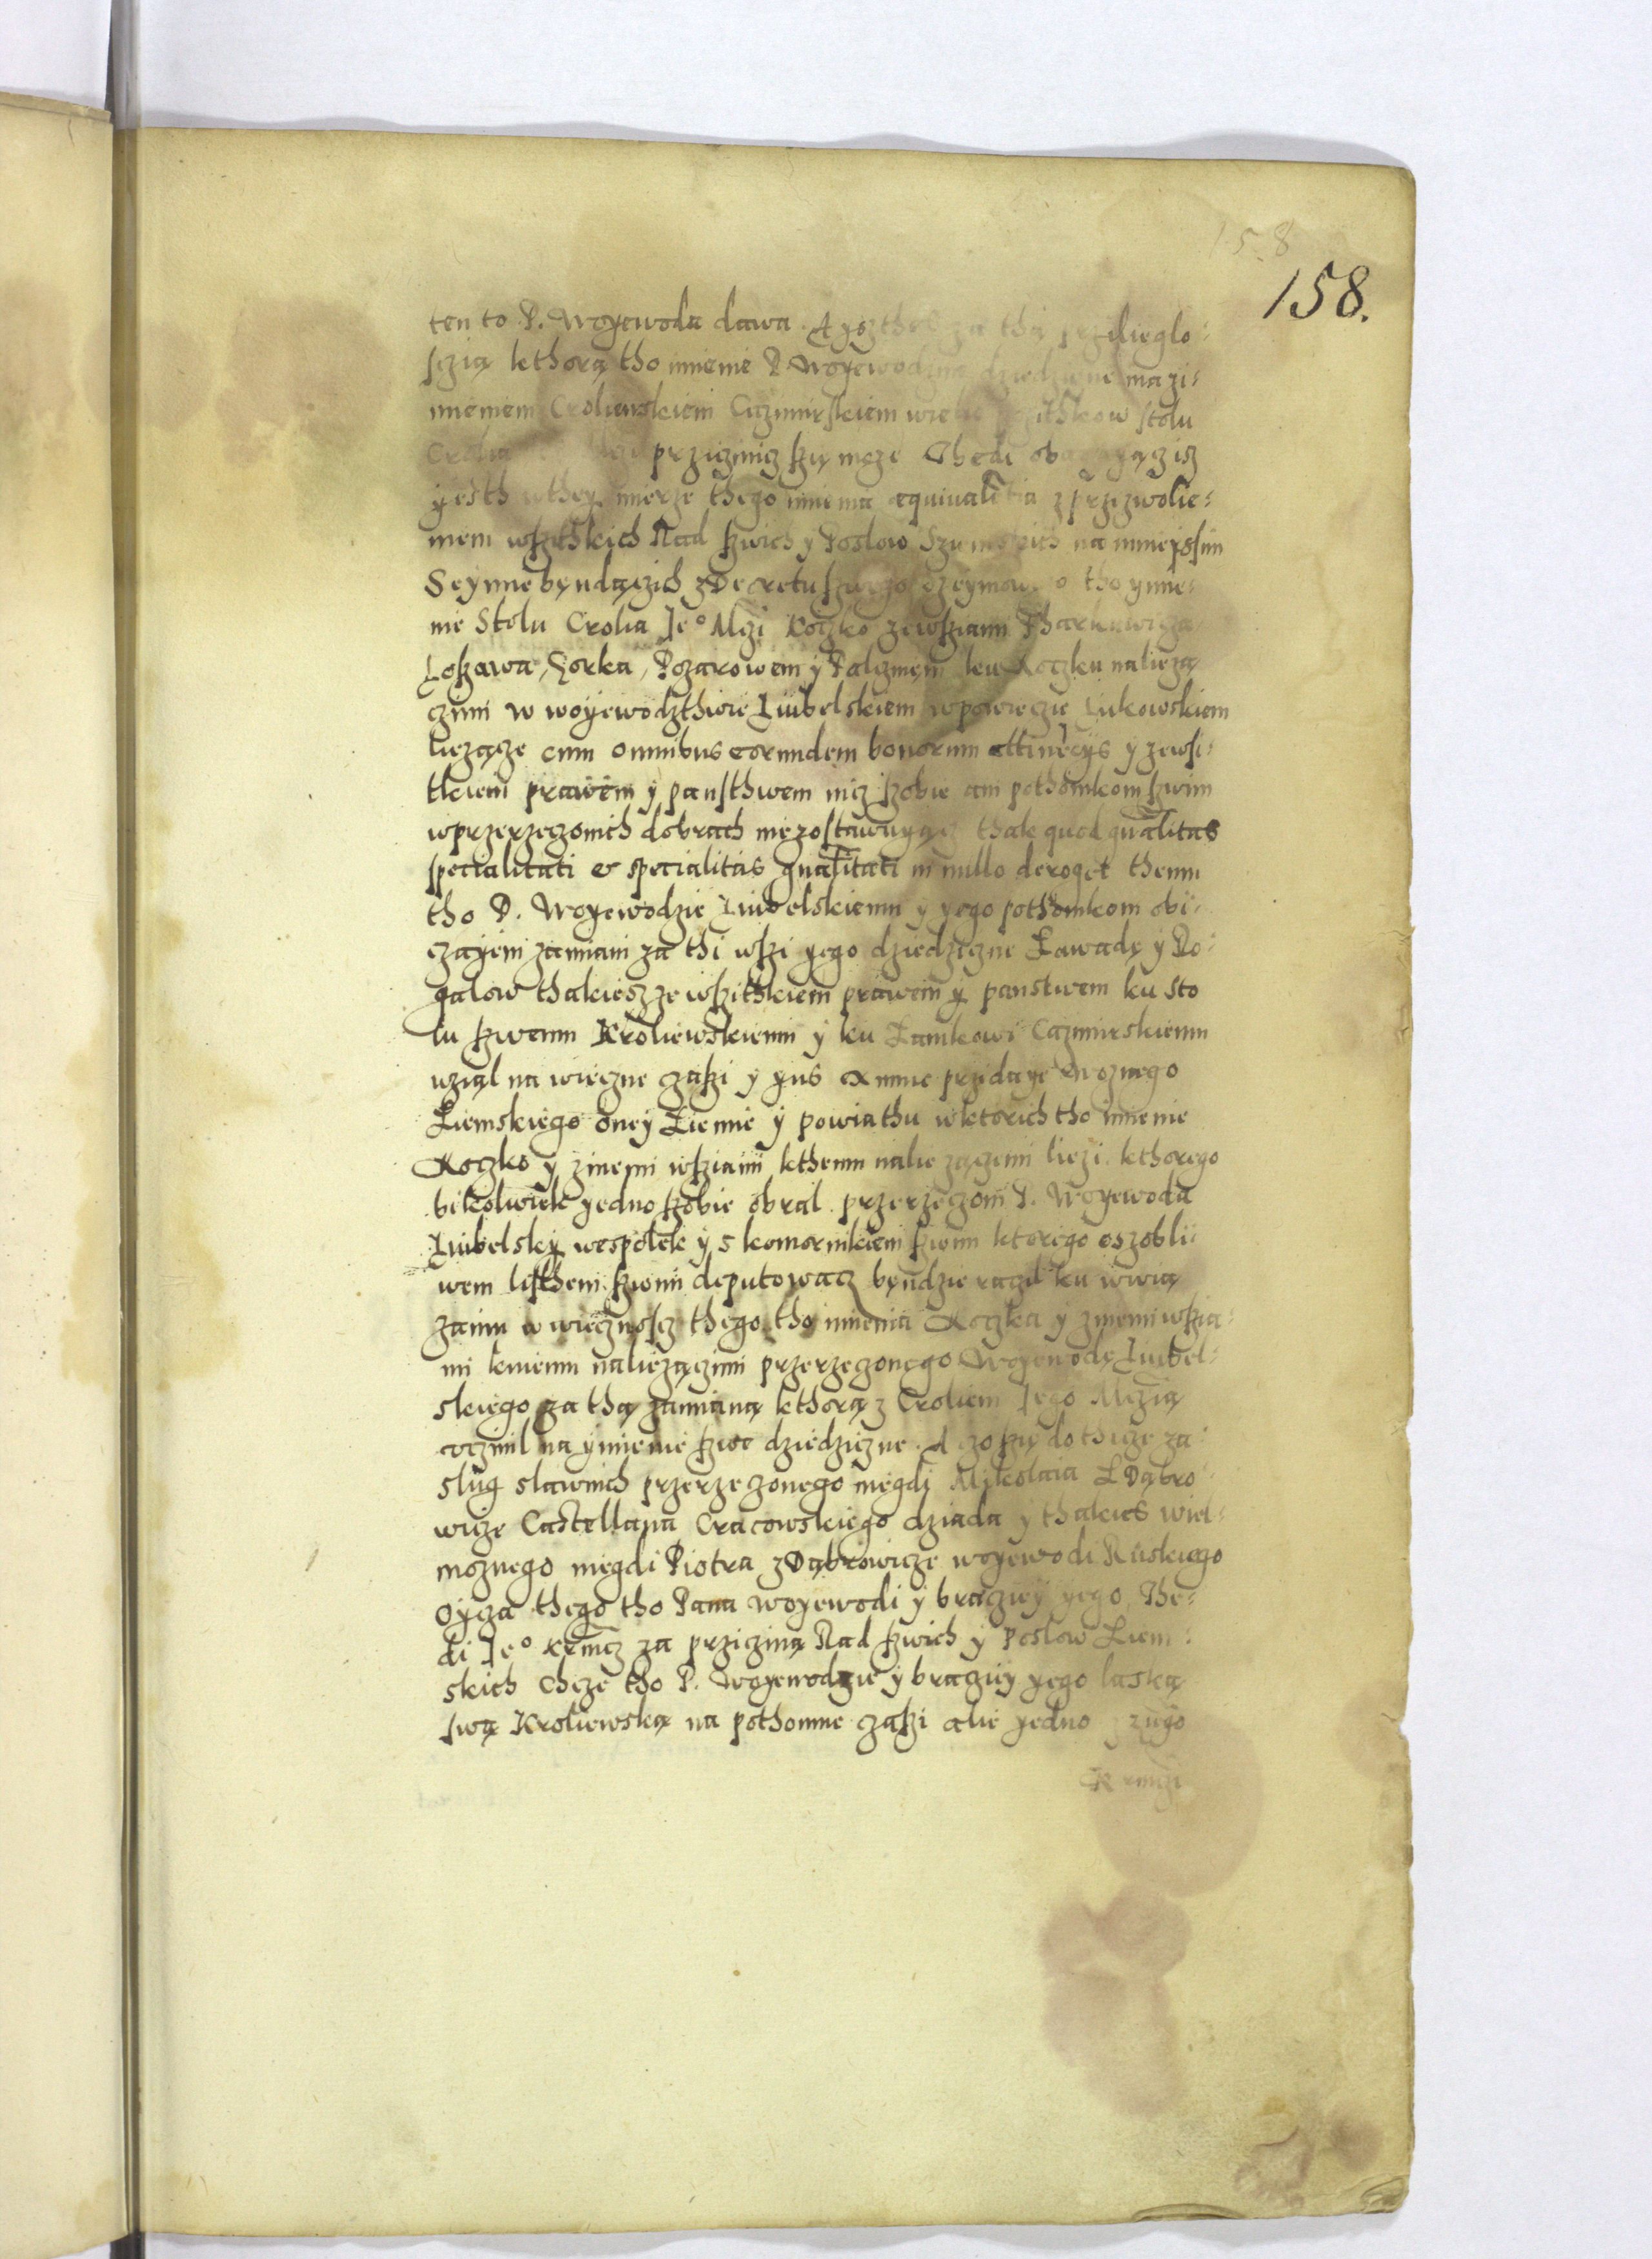 158
158.
ten to P. Woyewoda dawa. A yszthes za thą prziliеglo-
sczią kthorą tho imienie P Woyewodzine dziedziczne ma zi-
mieniem Croliewskiem Cazimirskiem wiele pozithkow stolu
Crolia prziczinicz szię może Thedi obaczayącz isz
yesth w they mierze thego imienia equivalētia z przizwolie-
niem wszithkich Rad swich y Posłow Sziemskich na ninieyssim
Seymie będączich z Decretu szwego szeymowego tho ymie-
nie Stolu Crolia Jeº Mczi Koczko ze wsziami Tharkawicza
Loszawa, Gorka, Pozarowem y Poliznięm ku Koczku należą
czimi w woyewodzthwie Liubelskiem w powieczie Lukowskiem
liezącze cum omnibus eorundem bonorum attinēcijs y zewsi-
tkiem prawem y pansthwem nicz szobie ani pothomkom szwim
w przerzeczonich dobrach niezostawuyącz thak quod qualitas
specialitati et specialitas qualitati in nullo deroget themu
tho P. Woyewodzie Liubelskiemu y yego pothomkom obi-
czayem zamiani za thi wszi yego dziedziczne Zawadę y Ro-
galow thakiesz ze wszitkiem prawem y panstwem ku sto
lu szwemu Kroliewskiemu y ku Zamkowi Cazimirskiemu
wziąl na wieczne czaszi y yus ex nunc przidaye woznego
Ziemskiego oney Ziemie y powiathu w ktorich tho imienie
Koczko y z inemi wsziami kthemu nalie zączemi liezi kthorego
bikolwiek yedno szobie obral przerzeczoni P. Woyewoda
Liubelsky wespolek y s komornikiem szwim ktorego oszobli-
wem listhem szwim deputowacz będzie raczil ku wwią
zaniu w wiecznoscz thego tho imienia Koczka y z inemi wszia-
mi kniemu należączimi przerzeczonego Woyewodę Liubel-
skiego za thą zamianą kthorą z Croliem Jego Mczią
uczinil na ymienie szwe dziedziczne. A czo szię dothicze za-
slug slawnich przerzeczonego niegdi Mikolaia Z Dąbro-
wicze Castellana Cracowskiego dziada y thakies wiel-
moznego niegdi Piotra z Dąbrowicze woyewodi Ruskiego
Oycza thego tho Pana woyewodi y braciey yego The-
di Jeº Krmcz za prziczyną Rad szwich y Poslow Ziem-
skich Chcze tho P. Woyewodzie y braciey yego laską
swą Kroliewską na pothomne czaszi alie yedno zugo
Krmczi